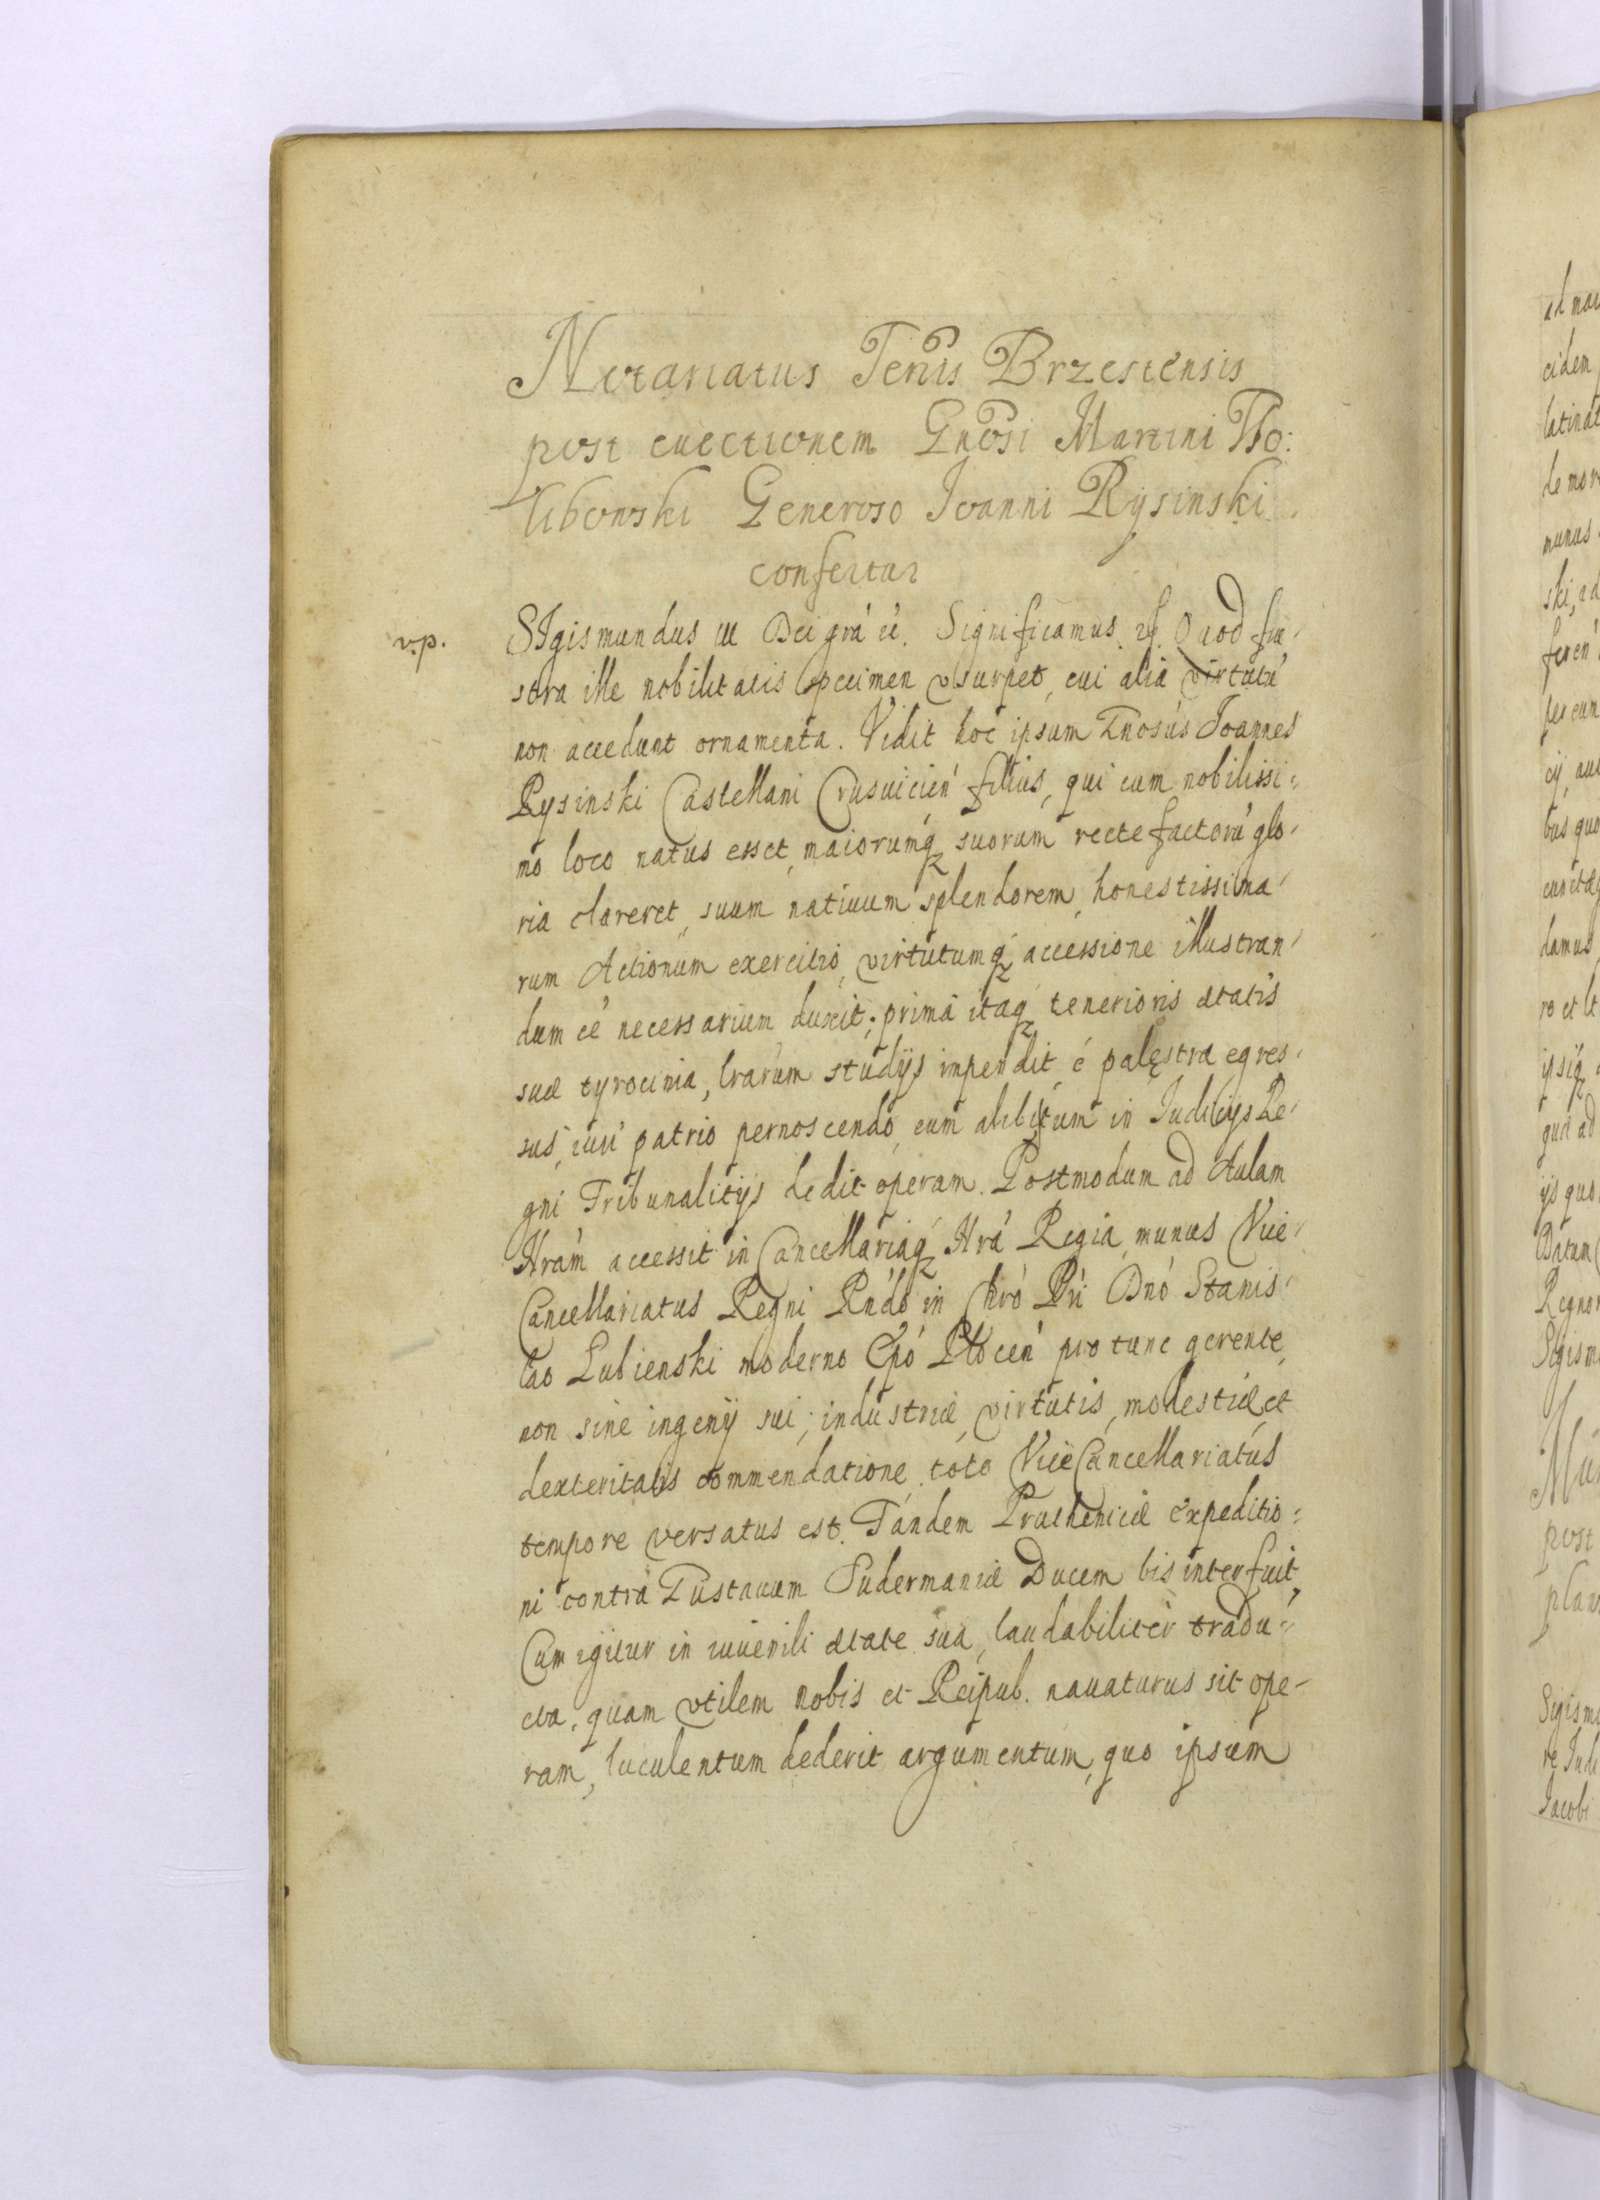 Notariatus Terris Brzestensis
post euectionem Gnosi Martini Tho:
libowski Generoso Joanni Rysinski
confertur
v.p.
SIgismundus III Dei grá &c. Significamus &c. Quod fru,
stra ille nobilitatis specimen vsurpet, cui alia virtutú
non accedunt ornamenta. Vidit hoc ipsum Gnosus Joannes
Rysinski Castellani Crusuicień filius, qui cum nobilissi=
mo loco natus esset, maiorumq suorum rectefactorú glo,
ria clareret, suum natiuum splendorem, honestissima,
rum Actionum exercitio, virtutumq accessione illustran,
dum cé necessarium duxit; prima itaq tenerioris ætatis
suæ tyrocinia, lrarum studijs impendit, é palęstra egres,
sus, iuri patrio pernoscendo, cum alibi tum in Judicijs Re,
gni Tribunalitijs dedit operam. Postmodum ad Aulam
Nrám accessit in Cancellariaq Nrá Regia, munus Vice,
Cancellariatus Regni Rndo in Chró Pri Dnó Stanis,
lao Lubienski moderno Epó Plocen pro tunc gerente,
non sine ingenij sui, industriæ, virtutis, modestiæ, et
dexteritatis commendatione toto ViceCancellariatus
tempore versatus est. Tandem Pruthenicæ Expeditio=
ni contra Gustauum Sudermaniæ Ducem bis interfuit,
Cum igitur in iuuenili ætate sua, laudabiliter tradu,
cta, quam vtilem nobis et Reipub. nauaturus sit ope-
ram, luculentum dederit argumentum, quo ipsum
ad
cidem
latinat
de mor
munus
ski, ad
feren
per eum
cij, au
bus quo
damus
ro et
ipsiq
ijs quo
Datum
Regnor
Sigism
Mu
post
plan
Sigismu
re Judi
Jacobi